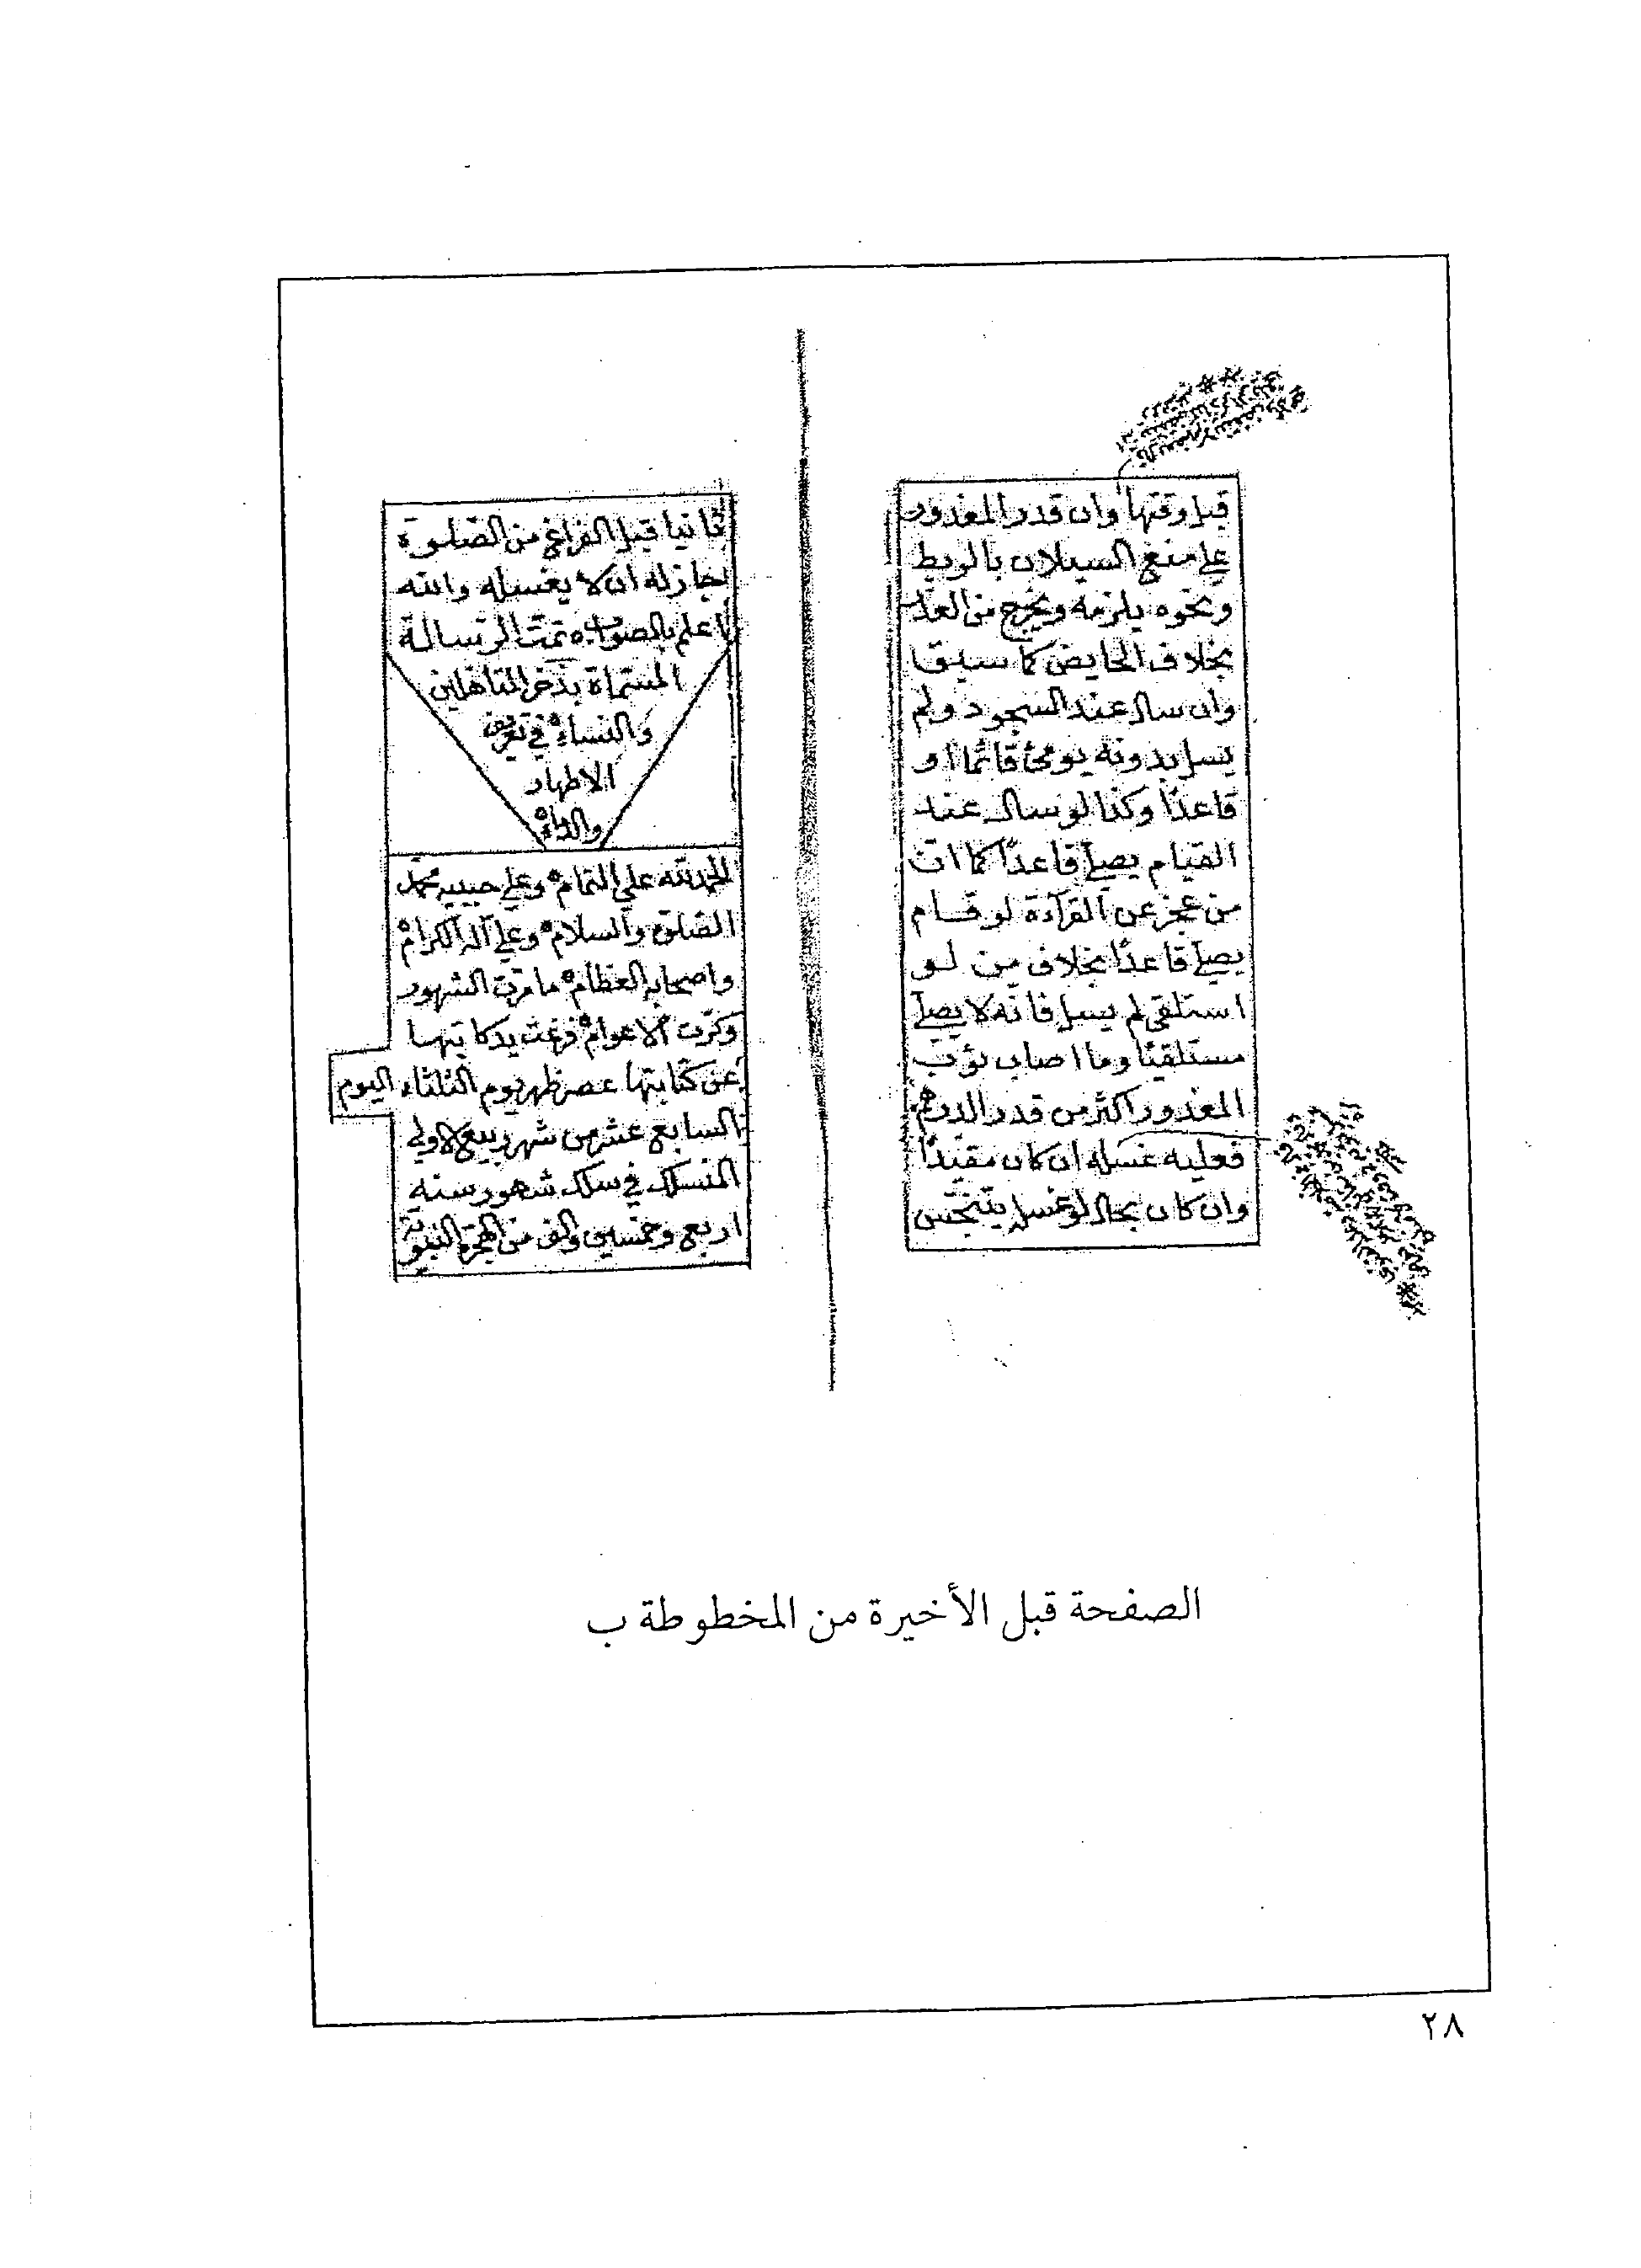 قبل وقتها وان قدر المعذور
علي منع السيلان بالربط
ونحوه يلزمه ويخرج من العذر
بخلاف الحايض كما سبق
وان سال عند السجود ولم
يسل بدونه يومئ قائما او
قاعدًا وكذا لو سال عند
القيام يصلي قاعدًا كما ان
من عجز عن القرآءة لو قام
يصلي قاعدًا بخلاف من لو
استلقي لم يسل فانه لا يصلي
مستلقيًا وما اصاب ثوب
المعذور اكثر من قدر الدرهم
فعليه غسله ان كان مقيدًا
وان كان بحال لو غسل يتنجّس
ثانيا قبل الفراغ من الصّلوة
جاز له ان لا يغسله والله
اعلم بالصواب تمت الرسالة
المسمّاة بذخر المتاهلين
والنساء في تعريف
الاطهار
والدماء
الحمد لله علي التمام وعلي حبيبه محمد
الصّلوة والسلام وعلي آله الكرام
واصحابه العظام ما مرت الشهور
وكرّت الاعوام فرغت يد كاتبها
عن كتابتها عصر ظهر يوم الثلثاء اليوم
السابع عشر من شهر ربيع الاولي
المنسلك في سلك شهور سنة
اربع وخمسين والف من الهجرة النبوية
الصفحة قبل الأخيرة من المخطوطة ب
٢٨